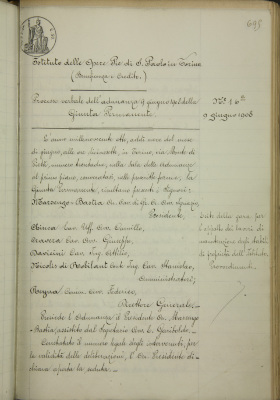 698
Istituto delle Opere Pie di S. Paolo in Torino
(Beneficenza e Credito.)
Processo verbale dell'adunanza 9 giugno 1908 della
Giunta Permanente.
No. 16º
9 giugno 1908
L'anno millenovecento otto, addì nove del mese
di giugno, alle ore in Torino, via Monte di
Pietà, numero trentadue, nella sala delle adunanze
al primo piano, convocatasi, nelle prescritte forme, la
Giunta Permanente, risultano presenti i Signori:
Marsengo-Bastia Cav. Avv. Ignazio,
Presidente;
Cav. Uff. Avv. Camillo,
Cravero Cav. Avv. Giuseppe,
Cav. Ing.
Nicolis di Robilant Conte Ing. Cav. Stanislao,
Amministratori;
Comm. Avv. Federico,
Direttore Generale.
Presiede l'Adunanza il Presidente Cav. Marsengo-
Bastia, assistito dal Segretario Avv. E. Garibaldi.
Constatato il numero legale degli intervenuti, per
la validità delle deliberazioni, il Sig. Presidente di-
chiara aperta la seduta.
per
l'appalto dei lavori di
manutenzione degli stabili
di proprietà dell'Istituto.
Provvedimenti.